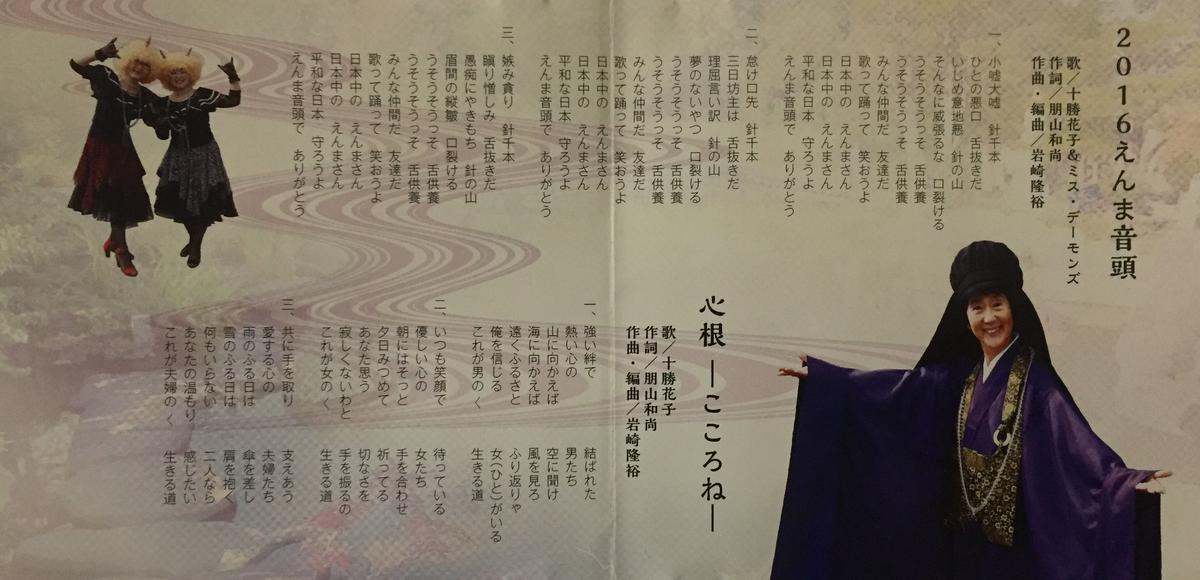 2016えんま音頭
歌／十勝花子&ミス・デーモンズ
作詞／朋山和尚
作曲・編曲／岩崎隆裕
一、小嘘大嘘　針千本
ひとの悪口　舌抜きだ
いじめ意地悪　針の山
そんなに威張るな　口裂ける
うそうそうそうって　舌供養
うそうそうそうって　舌供養
みんな仲間だ　友達だ
歌って踊って　笑おうよ
日本中の　えんまさん
日本中の　えんまさん
平和な日本　守ろうよ
えんま音頭で　ありがとう
二、怠け口先　針千本
三日坊主は　舌抜きだ
理屈言い訳　針の山
夢のないやつ　口裂ける
うそうそうそうって　舌供養
うそうそうそうって　舌供養
みんな仲間だ　友達だ
歌って踊って　笑おうよ
日本中の　えんまさん
日本中の　えんまさん
平和な日本　守ろうよ
えんま音頭で　ありがとう
三、嫉み貪り　針千本
瞋り憎しみ　舌抜きだ
愚痴にやきもち　針の山
眉間の縦皺　口裂ける
うそうそうそうって　舌供養
うそうそうそうって　舌供養
みんな仲間だ　友達だ
歌って踊って　笑おうよ
日本中の　えんまさん
日本中の　えんまさん
平和な日本　守ろうよ
えんま音頭で　ありがとう
心根 ―こころね―
歌／十勝花子
作詞／朋山和尚
作曲・編曲／岩崎隆裕
一、強い絆で　結ばれた
熱い心の　男たち
山に向かえば　空に聞け
海に向かえば　風を見ろ
遠くふるさと　ふり返りゃ
俺を信じる　女(ひと)がいる
これが男の　く　生きる道
二、いつも笑顔で　待っている
優しい心の　女たち
朝にはそっと　手を合わせ
夕日みつめて　祈ってる
あなた思う　切なさを
寂しくないわと　手を振るの
これが女の　く　生きる道
三、共に手を取り　支えあう
愛する心の　夫婦たち
雨のふる日は　傘を差し
雪のふる日は　肩を抱く
何もいらない　二人なら
あなたの温もり　感じたい
これが夫婦の　く　生きる道